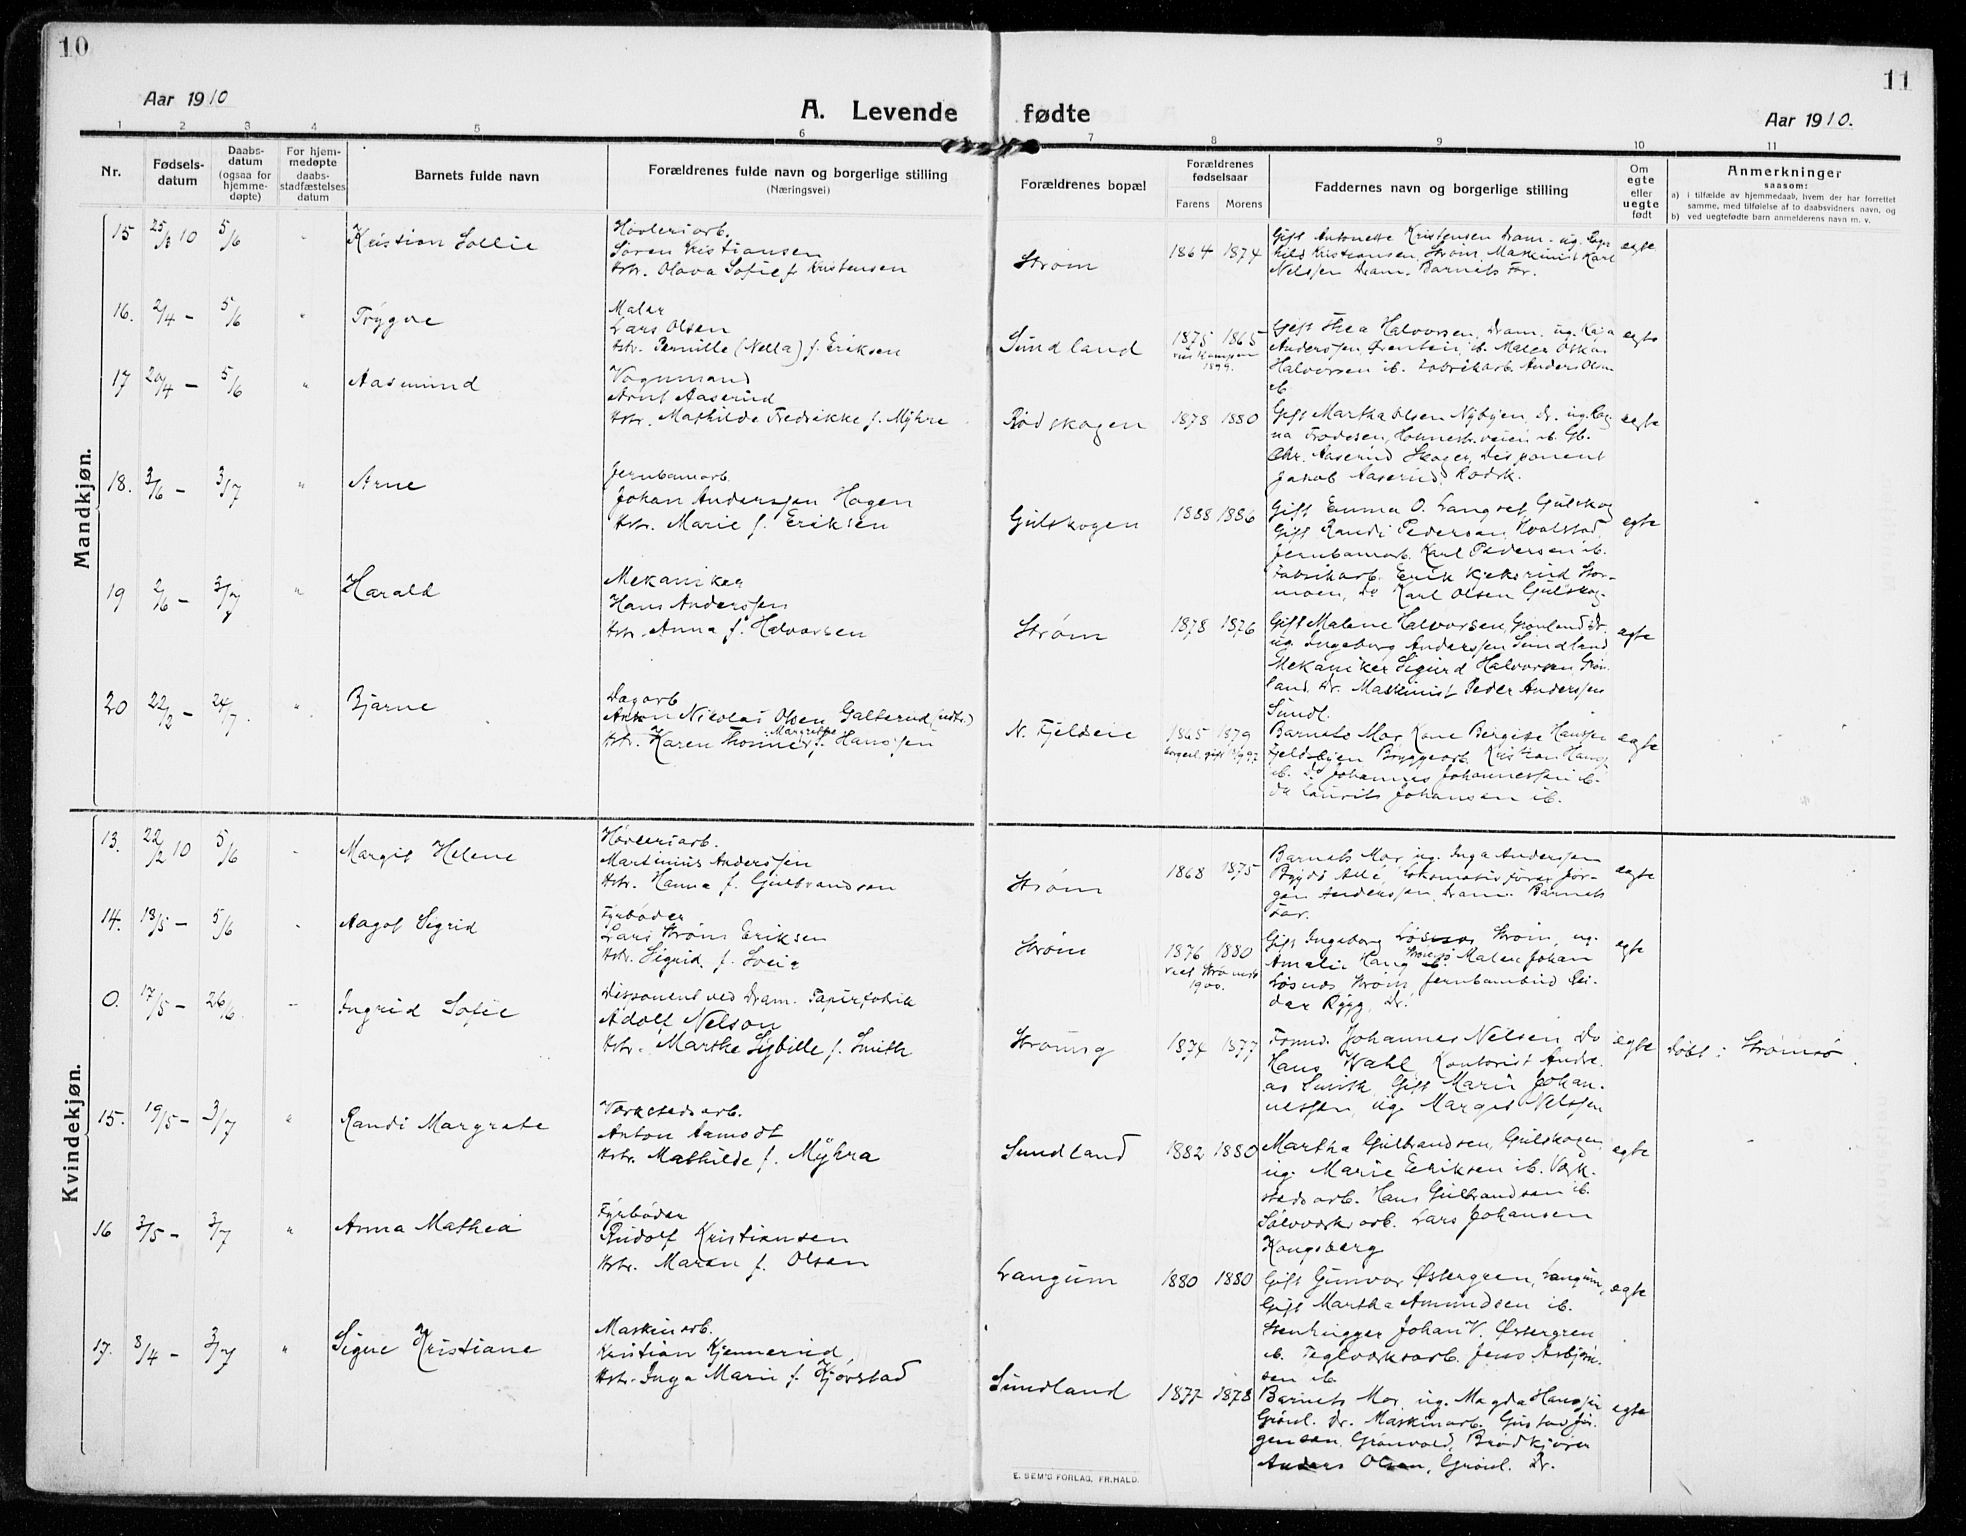 10
11
Aar 1910
A. Levende fødte
Aar 1910.
1 2 3 4 5 6 7 8 9 10 11
Nr.
Fødsels-
datum
Daabs-
datum
(ogsaa for
hjemme-
døpte)
For hjem-
medøpte
daabs-
stadfæstelses
datum
Barnets fulde navn
Forældrenes fulde navn og borgerlige stilling
(Næringsvei)
Forældrenes bopæl
Forældrenes
fødselsaar
Farens Morens
Faddernes navn og borgerlige stilling
Om
egte
eller
uegte
født
Anmerkninger
saasom:
a) i tilfælde av hjemmedaab, hvem der har forrettet
samme, med tilføielse af to daabsvidners navn, og
b) ved uegtefødte barn anmelderens navn m. v.
Mandkjøn.
15 25/3 10 5/6 Kristian Sollie
Høvleriarb.
Søren Kristiansen
Hstr. Olava Sofie f. Kristensen
Strøm 1864 1874
Gift Antonette Kristensen Dram. ug. Rag-
hild Kristiansen, Strøm, Maskinist Karl
Nelsen Dram. Barnets Far.
egte
16. 2/4 - 5/6 " Trygve
Maler
Lars Olsen
Hstr. Pernille (Nella) f. Eriksen
Sundland 1875 1865
1899.
Gift Thea Halvorsen, Dram. ug. Kaja
Anderssen ib. Maler Oskar
Halvorsen ib. Fabrikarb. Anders Olsen
ib.
egte
17 20/4 - 5/6 " Aasmund
Vognmand
Arnt Aaserud
Hstr. Mathilde Fredrikke f. Myhre
Rødskogen 1878 1880
Gift Martha Olsen Nybyen, Dr. ug. Rag-
na Frodesen, ib. Gb.
Chr. Aaserud Skoger, Disponent
Jakob Aaserud, Rødsk.
egte
18. 3/6 - 3/7 " Arne
Jernbanearb.
Johan Anderssen Hagen
Hstr. Marie f. Eriksen
Gulskogen 1888 1886
Gift Emma O. Langset, Gulskog
Gift Randi Pedersen, Hvalstad,
Jernbanearb. Karl Pedersen ib.
Fabrikarb. Erik Kjeksrud Stor-
moen, Do Karl Olsen Gulskog.
egte
19 2/6 - 3/7 " Harald
Mekaniker
Hans Anderssen
Hstr. Anna f. Halvorsen
Strøm 1878 1876
Gift Malene Halvorsen, Grønland Dr.
ug. Ingeborg Anderssen Sundland,
Mekaniker Sigurd Halvorsen, Grøn-
land. Dr. Maskinist Peder Anderssen
Sundl.
egte
20 22/2 - 24/7. " Bjarne
Dagarb
Anton Nikolai Olsen Galterud (udtr.)
Hstr. Karen Thomine Margrethe f. Hanssen
N. Fjeldeie 1865 1879
Barnets Mor, Kone Bergite Hanssen
Fjeldebyen Bryggearb. Kristian Hanss.
ib. Do Johannes Johannessen ib.
do Laurits Johansen ib.
egte
Kvindekjøn.
13. 22/2 10 5/6 Margit Helene
Høvleriarb.
Martinius Anderssen
Hstr. Hanna f. Gulbrandsen
Strøm 1868 1875
Barnets Mor, ug. Inga Anderssen
Bygdø Allé, Lokomotivfører Jør-
gen Anderssen, Dram. Barnets
Far.
egte
14. 13/5 - 5/6 Aagot Sigrid
Fyrbøder
Lars Strøm Eriksen
Hstr. Sigrid f. Sveia
Strøm 1876 1880
viet Strømsø
1900.
Gift Ingeborg Løsnæs Strøm, ug.
Amalie Haug Strømsø. Maler Johan
Løsnæs Strøm, Jernbanebud Rei-
dar Rygg, Dr.
egte
0. 17/5 - 26/6. Ingrid Sofie
Disponent ved Dram. Papirfabrik
Adolf Nelson
Hstr. Marthe Sybille f. Smith
Strømsg 1874 1877
Fomd. Johannes Nelsen, Do
Hans Wahl, Kontorist Andre-
as Smith, Gift Marie Johan-
nessen, ug. Margot Nelssen
egte
Døbt i Strømsø.
15. 19/5 - 3/7 " Randi Margrete
Værkstedsarb.
Anton Aamodt
Hstr. Mathilde f. Myhra
Sundland 1882 1880
Martha Gulbrandsen, Gulskogen,
ug. Marie Eriksen ib. Værk-
stedsarb. Hans Gulbrandsen ib.
Sølvværksarb. Lars Johansen
Kongsberg
egte
16 3/5 - 3/7 " Anna Mathea
Fyrbøder
Rudolf Kristiansen
Hstr. Maren f. Olsen
Langum 1880 1880
Gift Gunvor Østergren, Langum,
Gift Martha Amundsen ib.
Stenhugger Johan V. Østergren
ib. Teglværksarb. Jens Asbjørn-
sen ib.
egte
17. 8/4 - 3/7 " Signe Kristiane
Maskinarb.
Kristian Kjennerud
Hstr. Inga Marie f. Kjørstad
Sundland 1877 1878
Barnets Mor, ug. Magda Hanssen
Grønl. Dr. Maskinarb. Gustav Jør-
gensen, Grønvold, Brødkjører
Anders Olsen, Grønl. Dr.
egte
E. SEM'S FORLAG, FR.HALD.